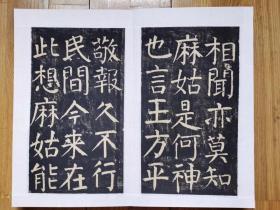 相聞亦莫知
麻姑是何神
也言王方平
敬報久不行
民間今來在
此想麻姑能